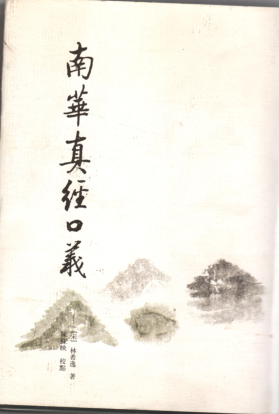 南華真經口義
[宋] 林希逸 著
映 校點